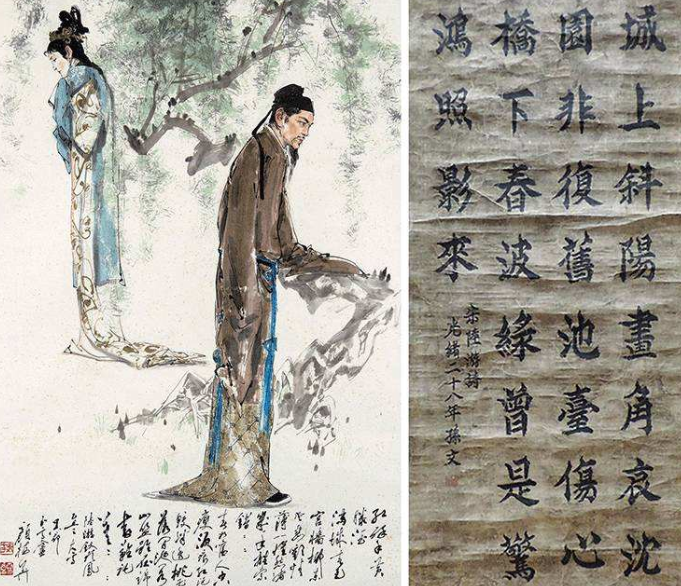 红酥手黄
縢酒
滿城春色
宮墻柳東
風惡歡情
薄一懷愁緒
春如舊人空
瘦淚痕紅浥
鮫綃透桃花
落閒池閣
山盟雖在錦
書難託
陸游釵頭鳳
城上斜陽畫角哀沈
園非復舊池臺傷心
橋下春波緣曾是驚
鴻照影來
宋陸游詩
光緒二十八年孫文